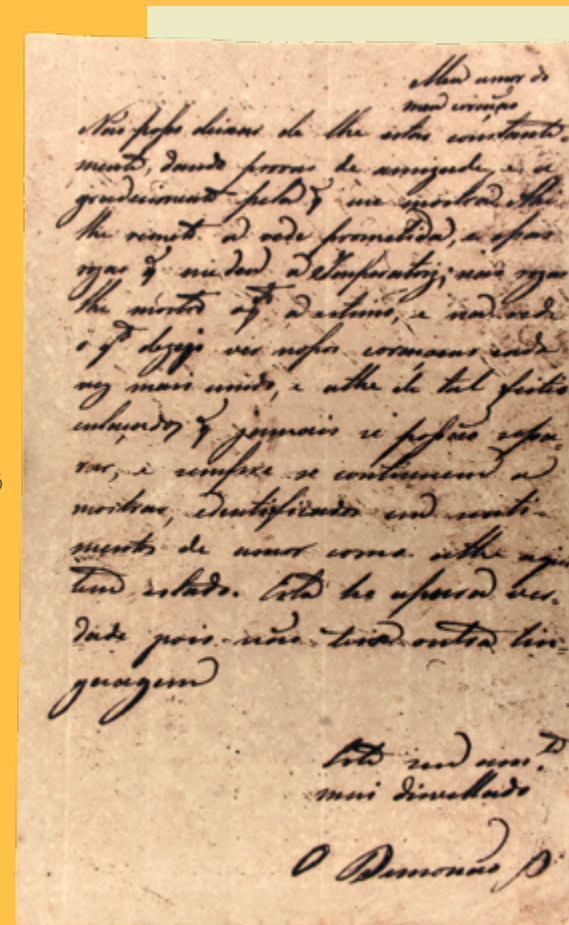 Meu amor do
meu coração
Não posso deixar de lhe estar constante-
mente, dando provas de amizade, e a
gradecimento pela q me mostra. Ahi
lhe remeto a rede prometida, e
rozas q me deu a Imperatriz; nas rozas
lhe mostro a estimo, e na rede
o q.to dezejo ver nossos coraçoens cada
vez mais unidos, e athe de tal feitio
enlaçados q jamais se possão sepa-
rar, e sempre se continuem a
mostrar, edentificados em senti-
mentos de amor como athe aqui
tem estado. Esta he a pura ver-
dade pois não tem outra lin-
goagem
Este seu am.te
mais disvellado
O Demonão